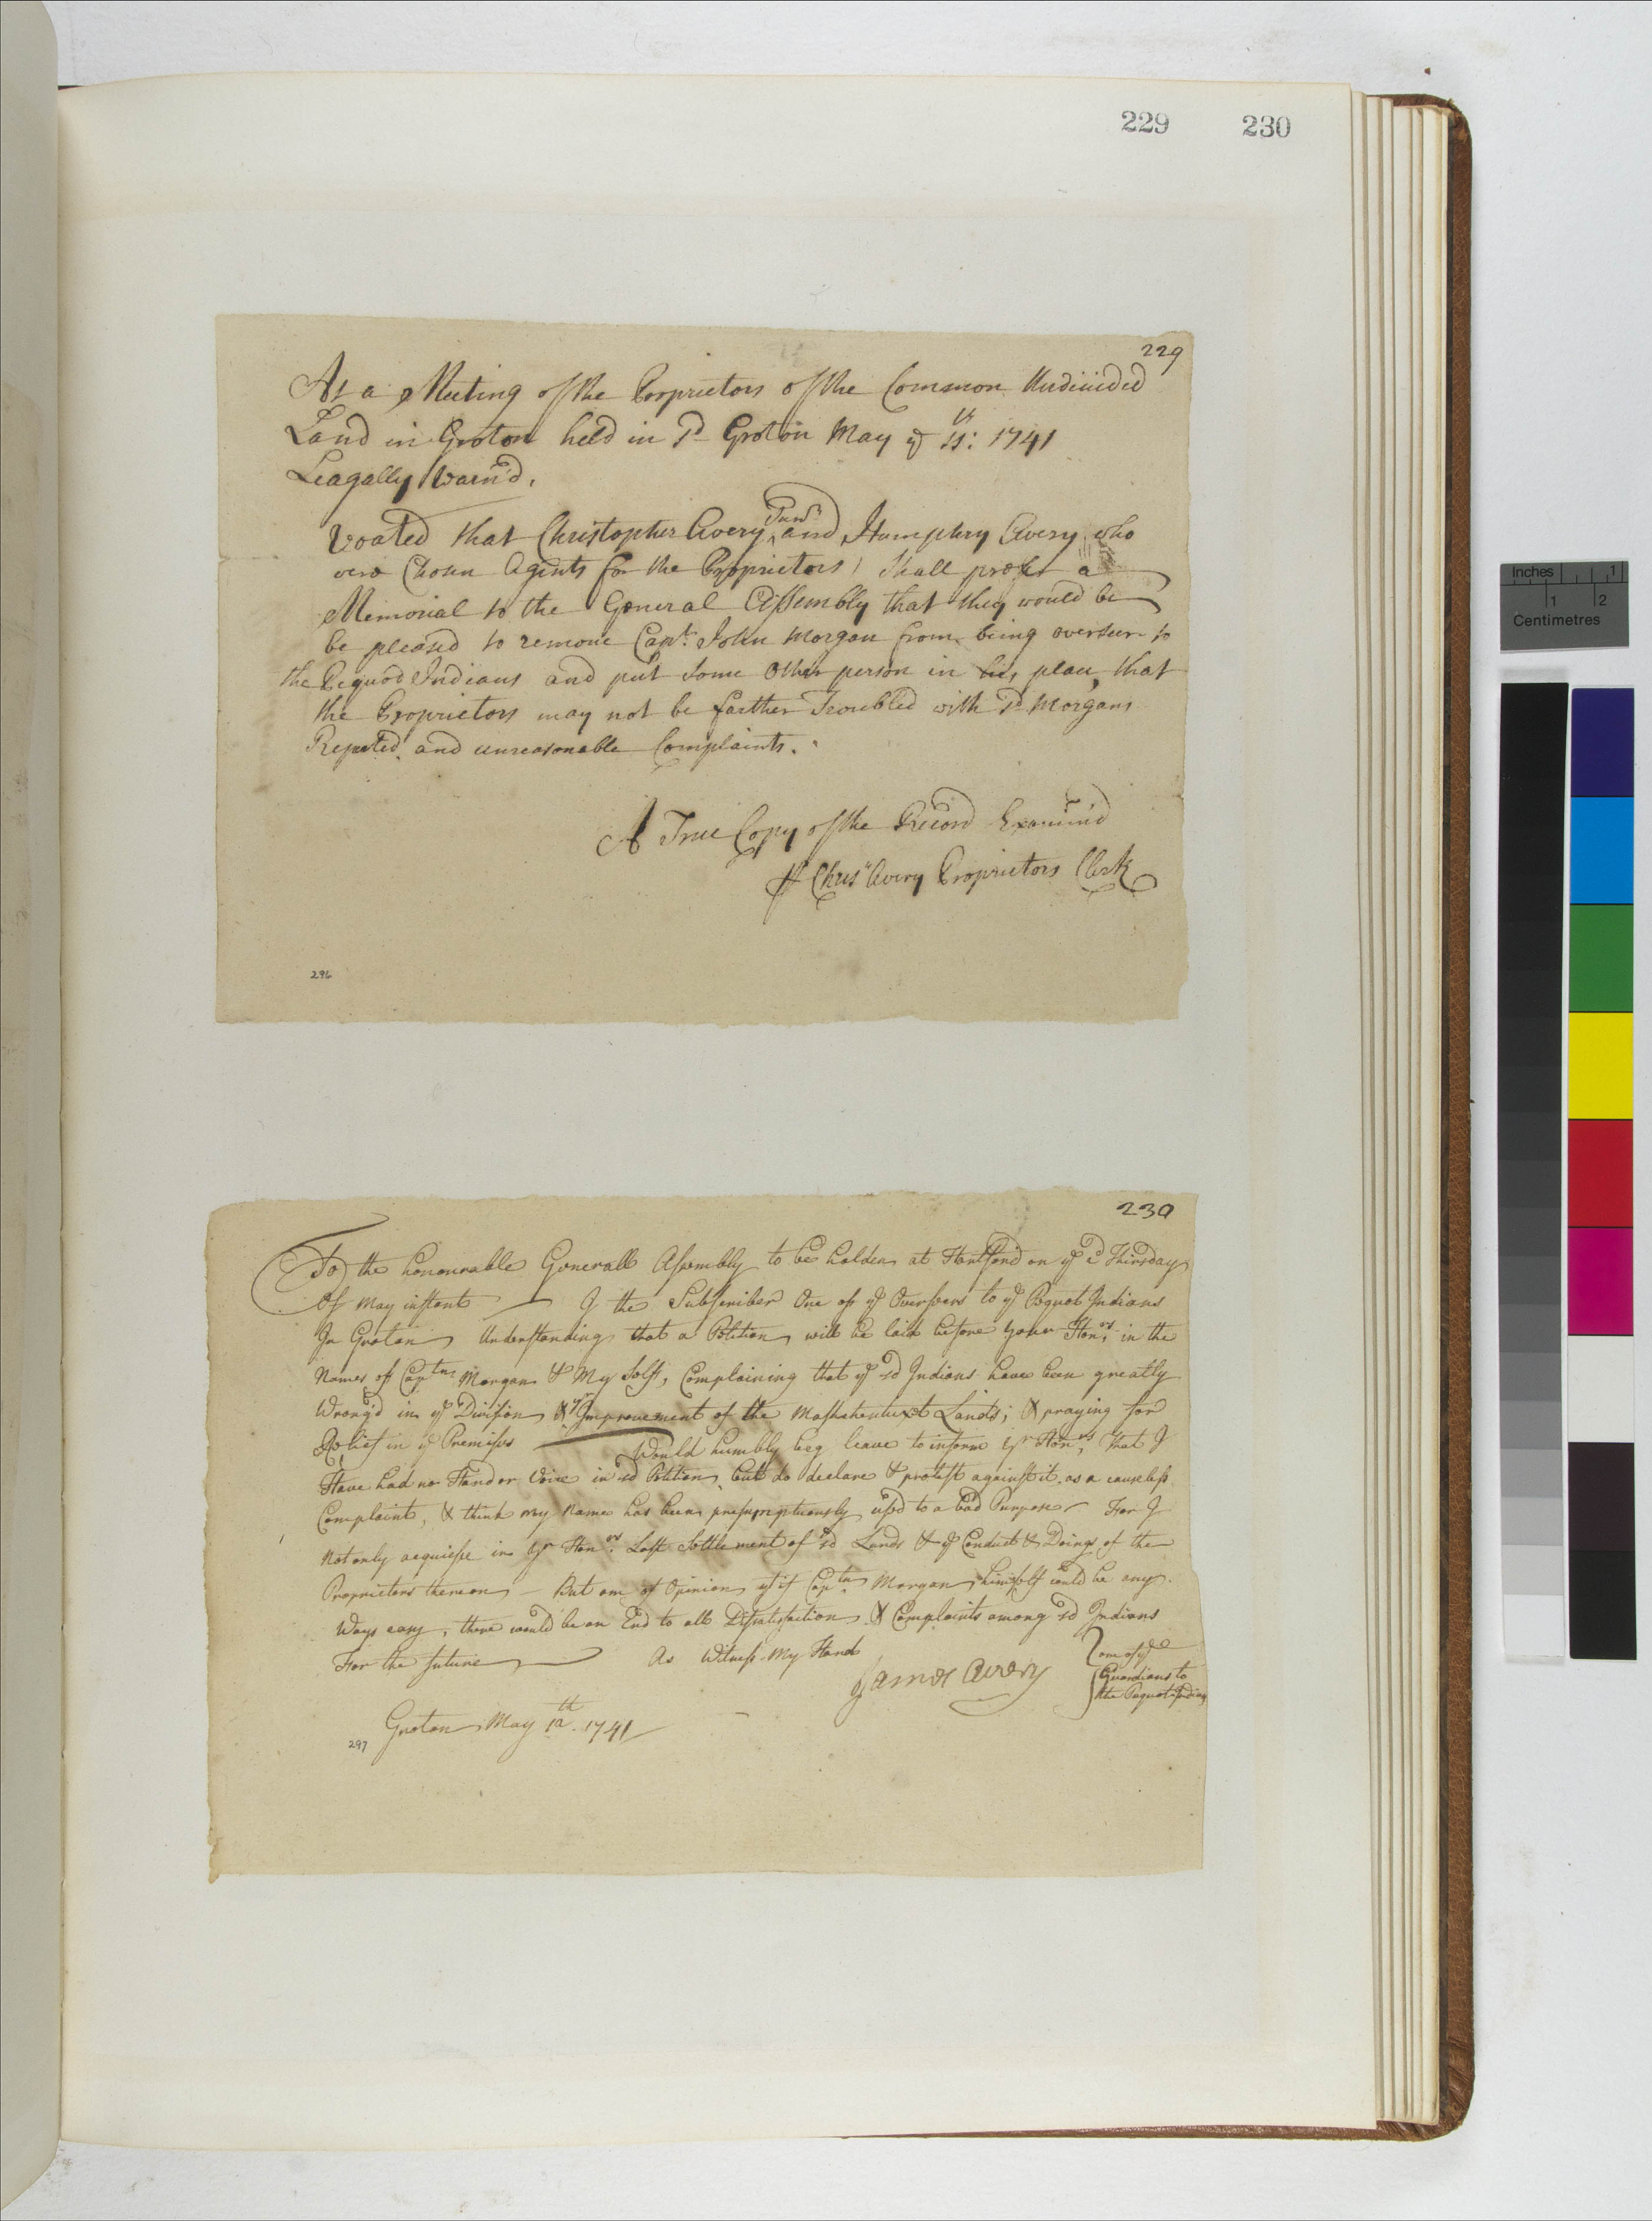 229 230
229
At a Meeting of the Proprietors of the Common Undiuided
Land in Groton held in sd Groton May ye 11th: 1741
Leagally Warn'd.
Voated that Christopher Avery Junr and Humphry Avery who
were Chosen Agents for the Proprietors shall prefer a
Memorial to the General Assembly that they would be
be pleased to remove Capt. John Morgan from being overseer to
the Pequod Indians and put some other person in his place, that
the Proprietors may not be farther Troubled with sd Morgans
Repeated and unreasonable Complaints.
A True Copy of the Record Examin'd
Chrisr Avery Proprietors Clerk
296
230
To the honourable Generall Assembly to be holden at Hartford on ye 2d Thirsday
Of May instant I the Subscriber One of ye Overseers to ye Pequot Indians
In Groton Understanding that a Petition will be laid before your Honrs in the
Names of Captn Morgan & My Self, Complaining that ye sd Indians have been greatly
Wrong'd in ye Division & Improvement of the Mashantuxet Lands; & praying for
Relief in ye Premises Would humbly beg leave to inform yr Honrs, that I
Have had no Hand or Voice in sd Petition, but do declare & protest against it as a causeless
Complaint, & think my Name has been presumptuously us'd to a bad Purpose For I
Not only acquiesse in yr Honrs. Last Settlement of sd Lands & ye Conduct & Doings of the
Proprietors thereon - But am of Opinion yt if Captn Morgan himself could be any
Ways easy, there would be an End to all Disatisfaction & Complaints among sd Indians
For the future As Witness My Hand
James Avery
one of ye
Guardians to
the Pequot Indians
Groton May 12th. 1741
297
Inches 1
1 2
Centimetres